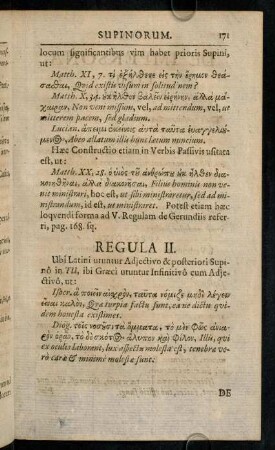 SUPINORUM. 171
locum significantibus vim habet prioris Supini,
ut:
Matth. XI, 7. τί ἐξήλθετε εἰς τὴν ἔρημον θεά-
σασθαι, Quid existis visum in solitudinem?
Matth. X, 34. οὐκ ἦλθον βαλεῖν εἰρήνην, ἀλλὰ μά-
χαιραν. Non veni missum, vel, ad mittendum, vel, ut
mitterem pacem, sed gladium.
Lucian. ἄπειμι ἐκείνοις αὐτὰ ταῦτα εὐαγγελιού-
Abeo allatum illis hunc lætum nuncium.
Hæc Constructio etiam in Verbis Passivis usitata
est, ut:
Matth. XX. 28. ὁ υἱὸς τοῦ ἀνθρώπου οὐκ ἦλθεν δια-
κονηθῆναι, ἀλλὰ διακονῆσαι. Filius hominis non ve-
nit ministrari, hoc est, ut sibi ministraretur, sed ad mi-
nistrandum, id est, ut ministraret. Potest etiam hæc
loqvendi forma ad V. Regulam de Gerundiis refer-
ri, pag. 168. sq.
REGULA II.
Ubi Latini utuntur Adjectivo & posteriori Supi-
nô in TU, ibi Græci utuntur Infinitivô cum Adje-
ctivô, ut:
Isocr. ἃ ποιεῖν αἰσχρὸν, ταῦτα νόμιζε μηδὲ λέγειν
εἶναι καλόν, Quæ turpia factu sunt, ea ne dictu qui-
dem honesta existimes.
Diog. τοῖς νοσοῦσι τὰ ὄμματα, τὸ μὲν φῶς ἀνια-
ρὸν ὁρᾶν, τὸ δὲ σκότος ἄλυπον καὶ φίλον, Illis, qui
ex oculis laborant, lux aspectu molesta est, tenebræ ve-
rò caræ & minimè molestæ sunt.
DE